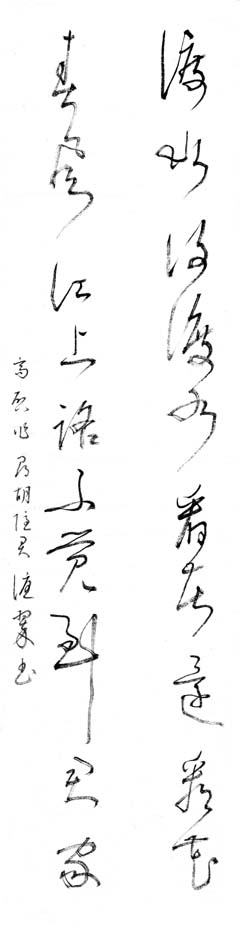 渡水復渡水看花還看花
春風江上路不覺到君家
高啟作尋胡隱君書